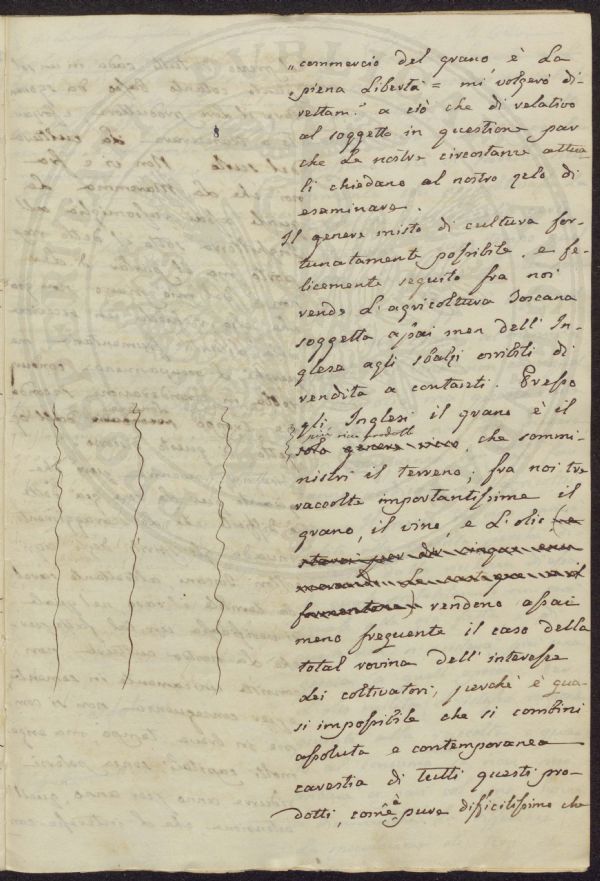 "commercio del grano, è la
"piena libertà = mi volgerò di-
rettam.e a ciò che di relativo
al soggetto in questione par
che le nostre circostanze attua-
li chiedano al nostro zelo di
esaminare.
Il genere misto di cultura for-
tunatamente possibile, e fe-
licemente seguito fra noi
rende l'agricoltura Toscana
soggetta assai men dell'In-
glese agli sbalzi orribili di
vendita a contanti. Presso
gli Inglesi il grano è il
più ricco prodotto
solo genere ricco, che sommi-
nistri il terreno; fra noi tre
raccolte importantissime il
grano, il vino, e l'olio (
formentone) rendono assai
meno frequente il caso della
total rovina dell'interesse
dei coltivatori, perchè è qua-
si impossibile che si combini
assoluta e contemporanea
carestia di tutti questi pro-
dotti, com'è pure difficilissimo che